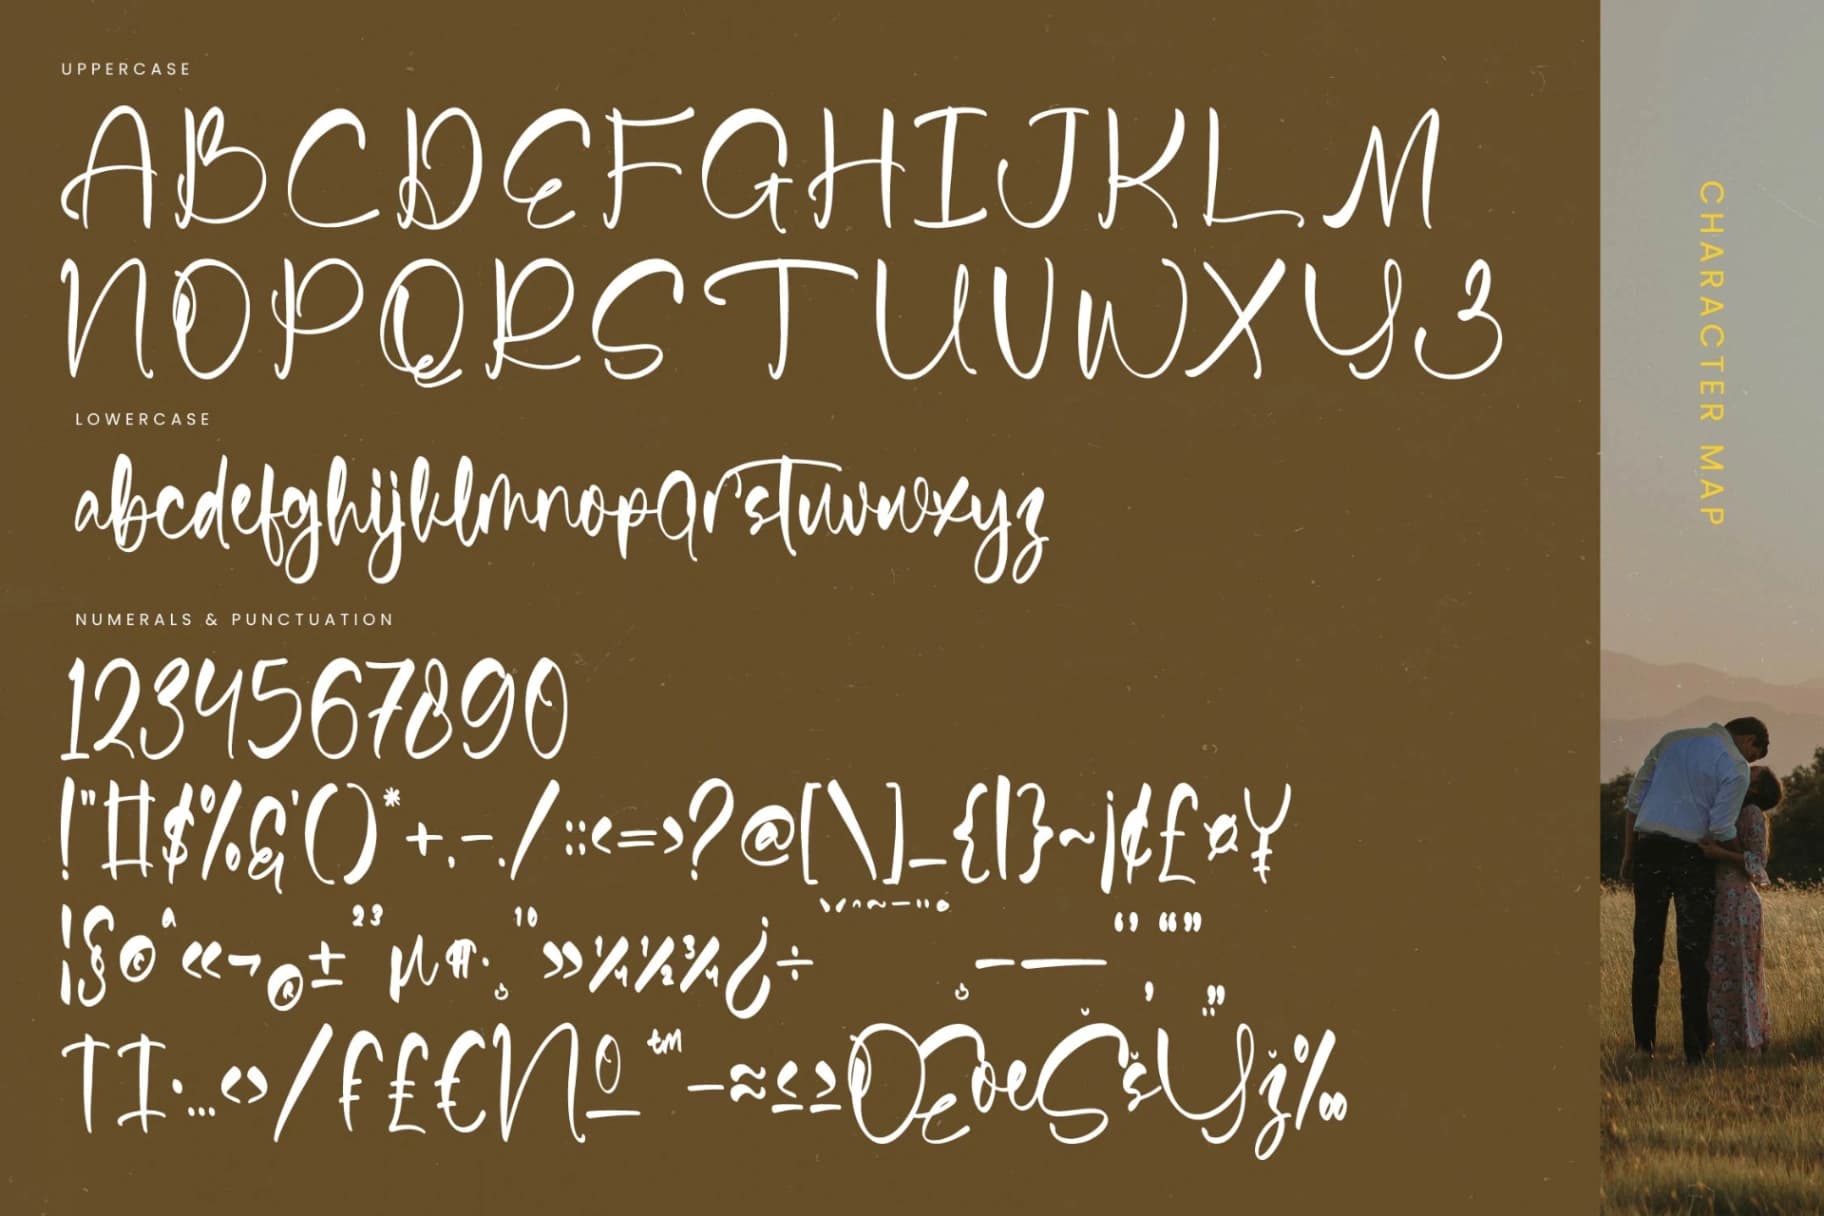 UPPERCASE
ABCDEFGHIJKLM
NOPQRSTUVWXYZ
LOWERCASE
abcdefghijklmnopqrstuvwxyz
NUMERALS & PUNCTUATION
1234567890
!"#$%&'()*+,-./:;<=>?@[\]_{|}~¡¢£¤¥
¦§©ª«¬®±²³µ¶·¸¹º»¼½¾¿÷
†‡•…‹›⁄₣₤€№™−≈≤≥ŒœŠšŸž‰
CHARACTER MAP